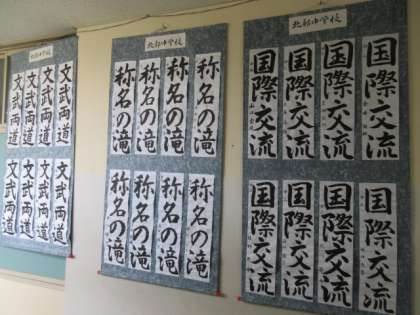 北部中学校
文武両道
文武両道
文武両道
文武両道
文武両道
文武両道
文武両道
文武両道
北部中学校
称名の滝
称名の滝
称名の滝
称名の滝
称名の滝
称名の滝
称名の滝
称名の滝
北部中学校
国際交流
国際交流
国際交流
国際交流
国際交流
国際交流
国際交流
国際交流